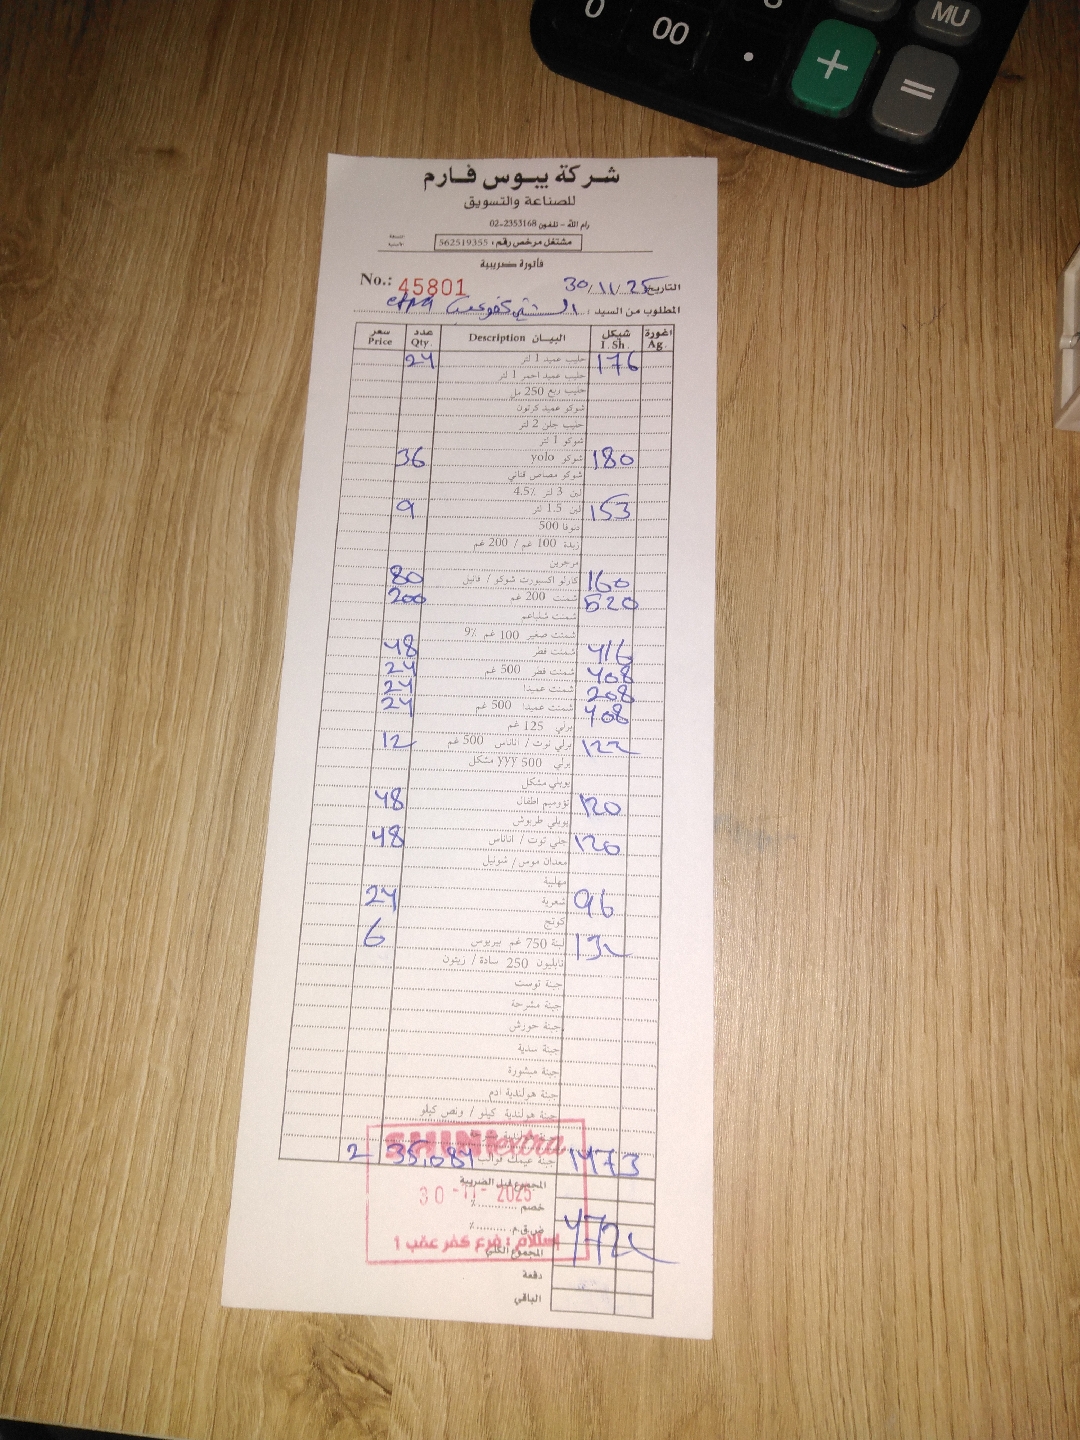 شركة يبوس فارم
للصناعة والتسويق
رام الله - تلفون 2353168-02
مشتغل مرخص رقم: 562519355
فاتورة ضريبية
No.: 45801 التاريخ 30/11/25
المطلوب من السيد: extra
سعر Price عدد Qty. البيان Description شيكل I. Sh. اغورة Ag.
24 حليب عميد 1 لتر 176
حليب عميد احمر 1 لتر
حليب ربع 250 مل
شوكو عميد كرتون
حليب جلن 2 لتر
شوكو 1 لتر
36 شوكو yolo 180
شوكو مصاص قناني
لبن 3 لتر 4.5٪
9 لبن 1.5 لتر 153
دنوفا 500
زبدة 100 غم / 200 غم
مرجرين
80 كارلو اكسبورت شوكو / فانيل 160
200 شمنت 200 غم 520
شمنت
شمنت صغير 100 غم 9٪
48 شمنت قطر 416
24 شمنت قطر 500 غم 408
24 شمنت عميدا 208
24 شمنت عميدا 500 غم 408
برلي 125 غم
12 برلي توت / اناناس 500 غم 122
برلي 500 yyy مشكل
يوبلي مشكل
48 اطفال 120
يوبلي طربوش
48 جلي توت / اناناس 120
معدان موس / شونيل
مهلبية
24 شعرية 96
كوتج
6 لبنة 750 غم بيريوس 132
نابليون 250 سادة / زيتون
جبنة توست
جبنة مشرحة
جبنة حورش
جبنة سدية
جبنة مبشورة
جبنة هولندية ادم
جبنة هولندية كيلو / ونص كيلو
SHINI extra
2 35,084 جبنة عيمك قوالب 1473
المجموع قبل الضريبة
30 -11- 2025
خصم ......... ٪
ض.ق.م ......... ٪
إستلام : فرع كفر عقب 1
المجموع الكلي 4722
دفعة
الباقي
MU
0 00 . + =